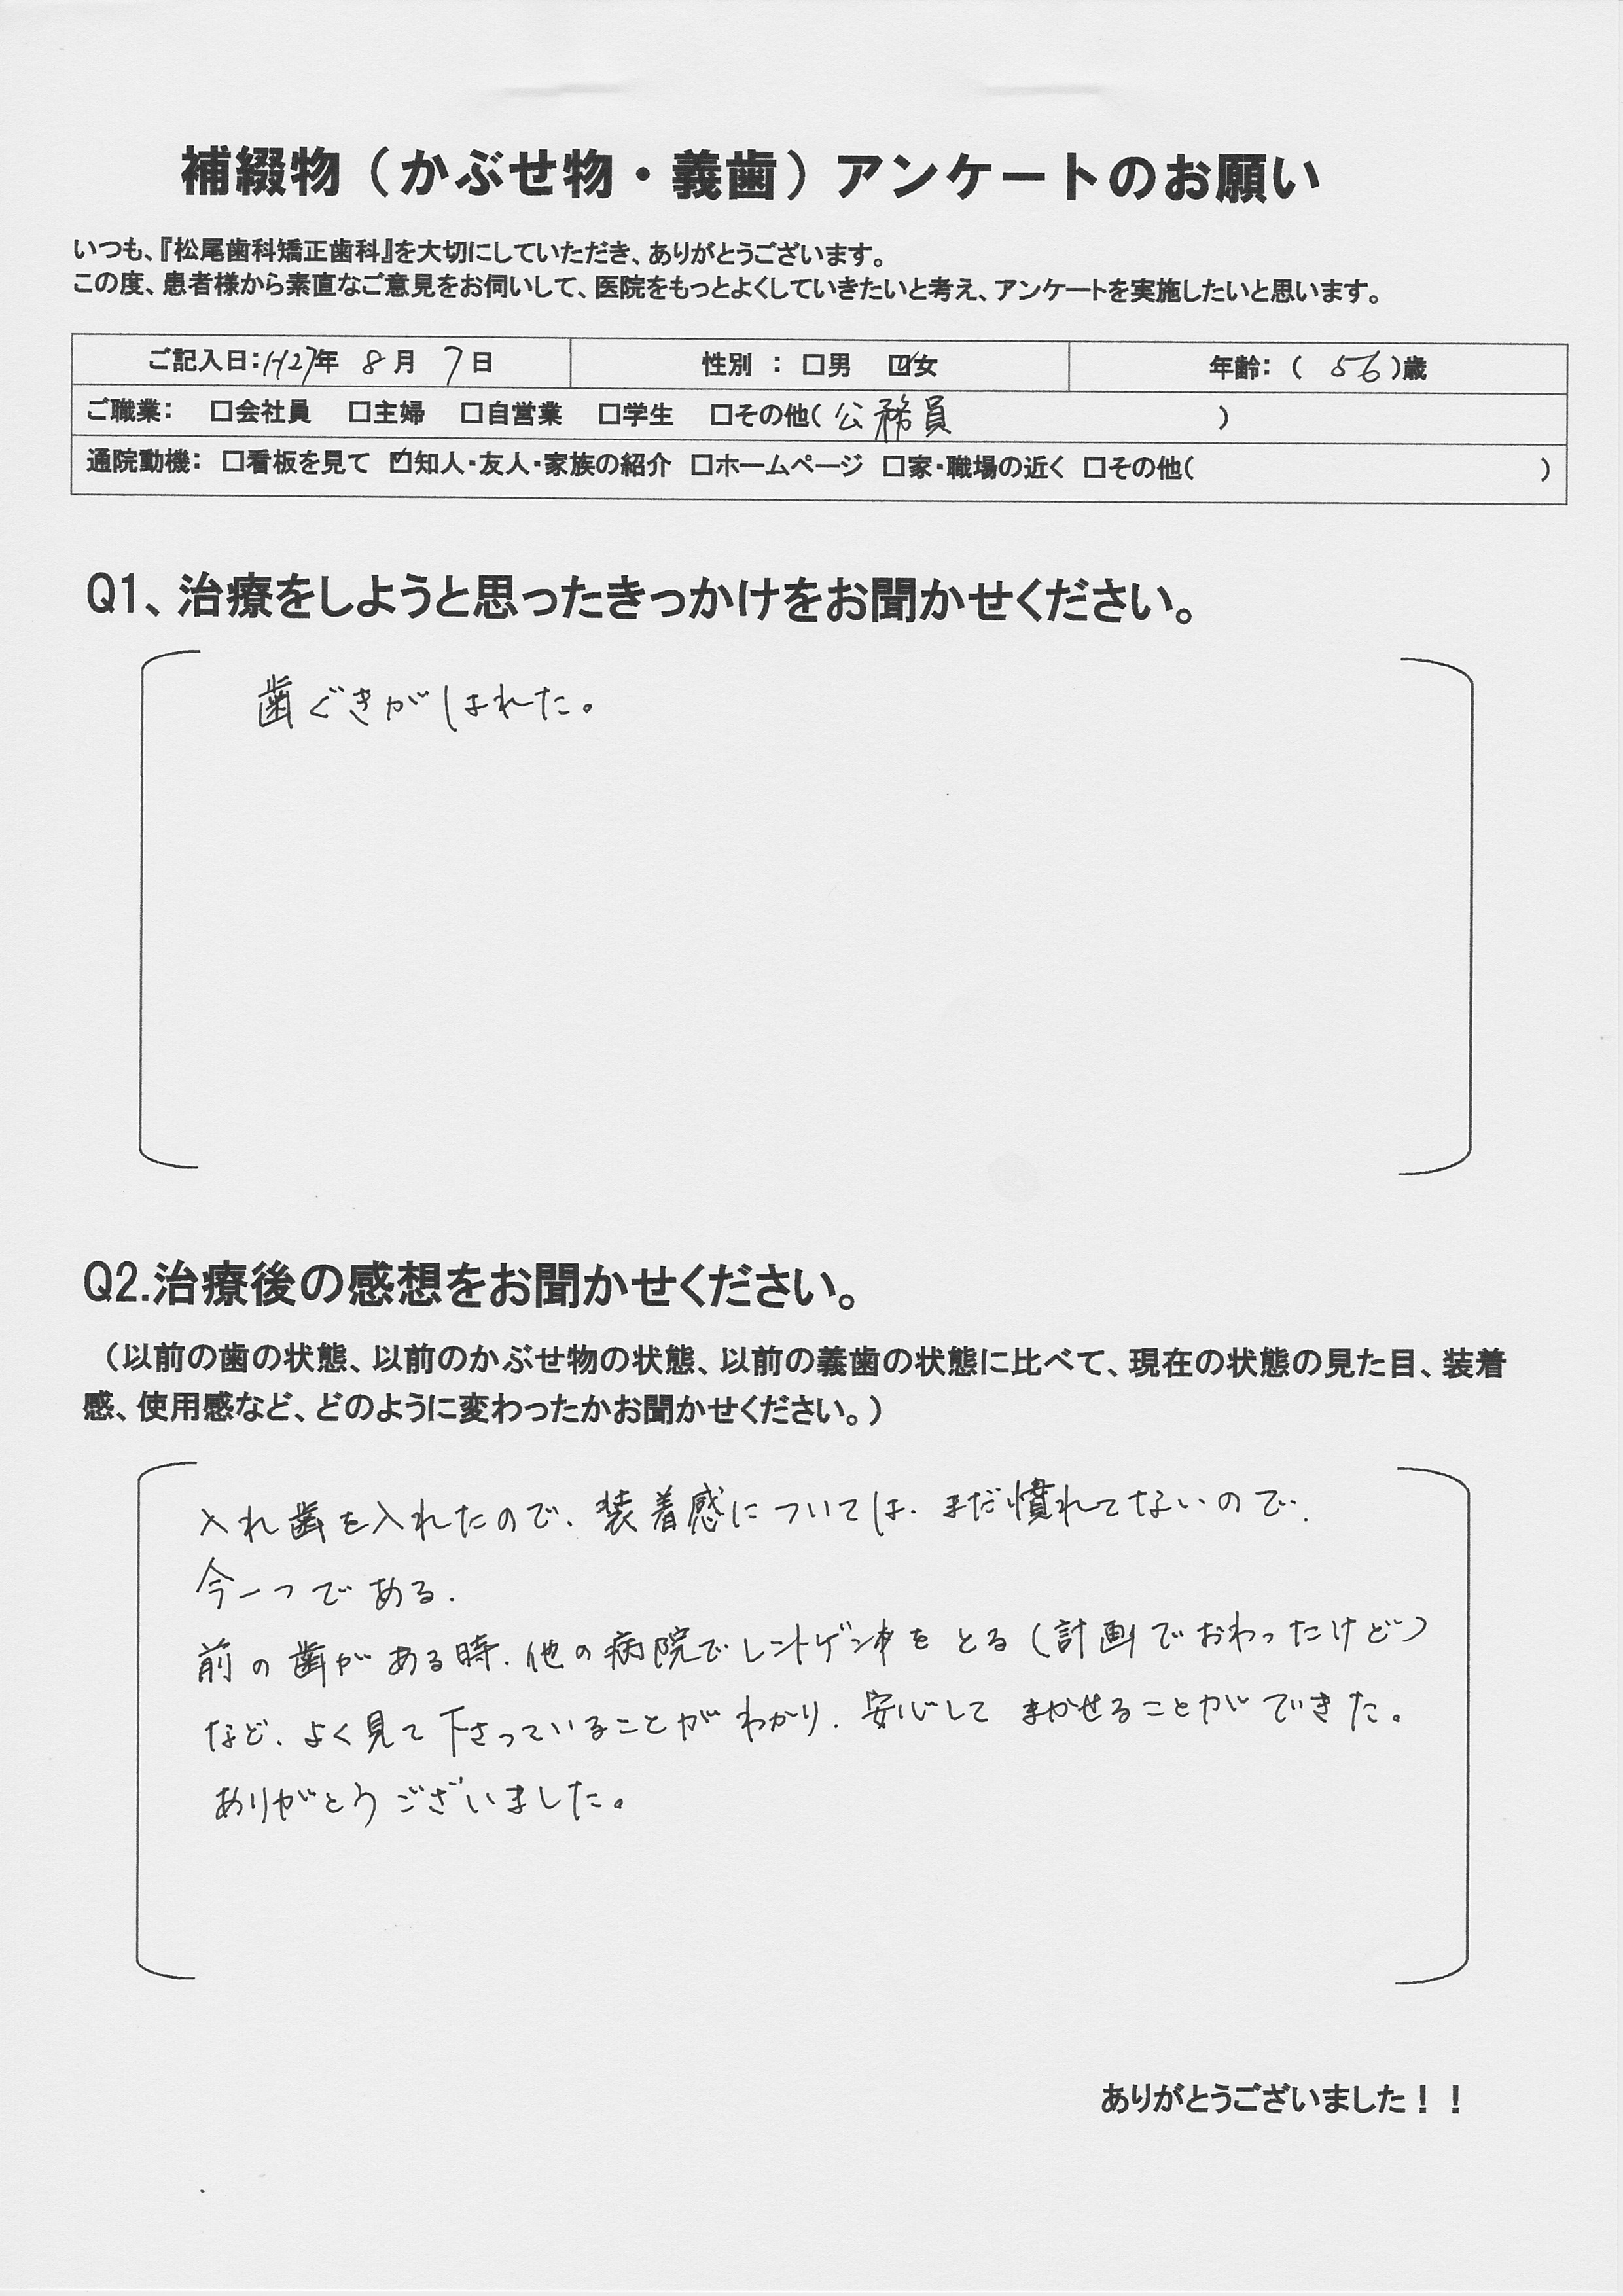 補綴物（かぶせ物・義歯）アンケートのお願い
いつも、『松尾歯科矯正歯科』を大切にしていただき、ありがとうございます。
この度、患者様から素直なご意見をお伺いして、医院をもっとよくしていきたいと考え、アンケートを実施したいと思います。
ご記入日：H27年 8月 7日 性別 ： □男 ☑女 年齢：（ 56 ）歳
ご職業： □会社員 □主婦 □自営業 □学生 □その他（ 公務員 ）
通院動機： □看板を見て ☑知人・友人・家族の紹介 □ホームページ □家・職場の近く □その他（ ）
Q1、治療をしようと思ったきっかけをお聞かせください。
歯ぐきがはれた。
Q2.治療後の感想をお聞かせください。
（以前の歯の状態、以前のかぶせ物の状態、以前の義歯の状態に比べて、現在の状態の見た目、装着
感、使用感など、どのように変わったかお聞かせください。）
入れ歯を入れたので、装着感については、まだ慣れてないので、
今一つである。
前の歯がある時、他の病院でレントゲンをとる（計画でおわったけど）
など、よく見て下さっていることがわかり、安心してまかせることができた。
ありがとうございました。
ありがとうございました！！